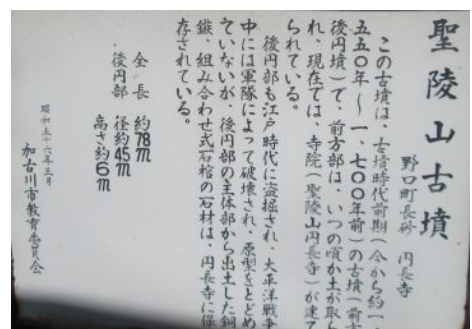 聖陵山古墳
野口町長砂 円長寺
この古墳は、古墳時代前期(今から約一
五五〇年～一、七〇〇年前)の古墳(前方
後円墳)で、前方部は、いつの頃か土が取ら
れ、現在では、寺院(聖陵山円長寺)が建て
られている。
後円部も江戸時代に盗掘され、太平洋戦争
中には軍隊によって破壊され、原型をとどめ
ていないが、後円部の主体部から出土した銅
鏃、組み合わせ式石棺の石材は、円長寺に保
存されている。
全長 約78m
後円部 径約45m
高さ約6m
昭和五十六年三月
加古川市教育委員会